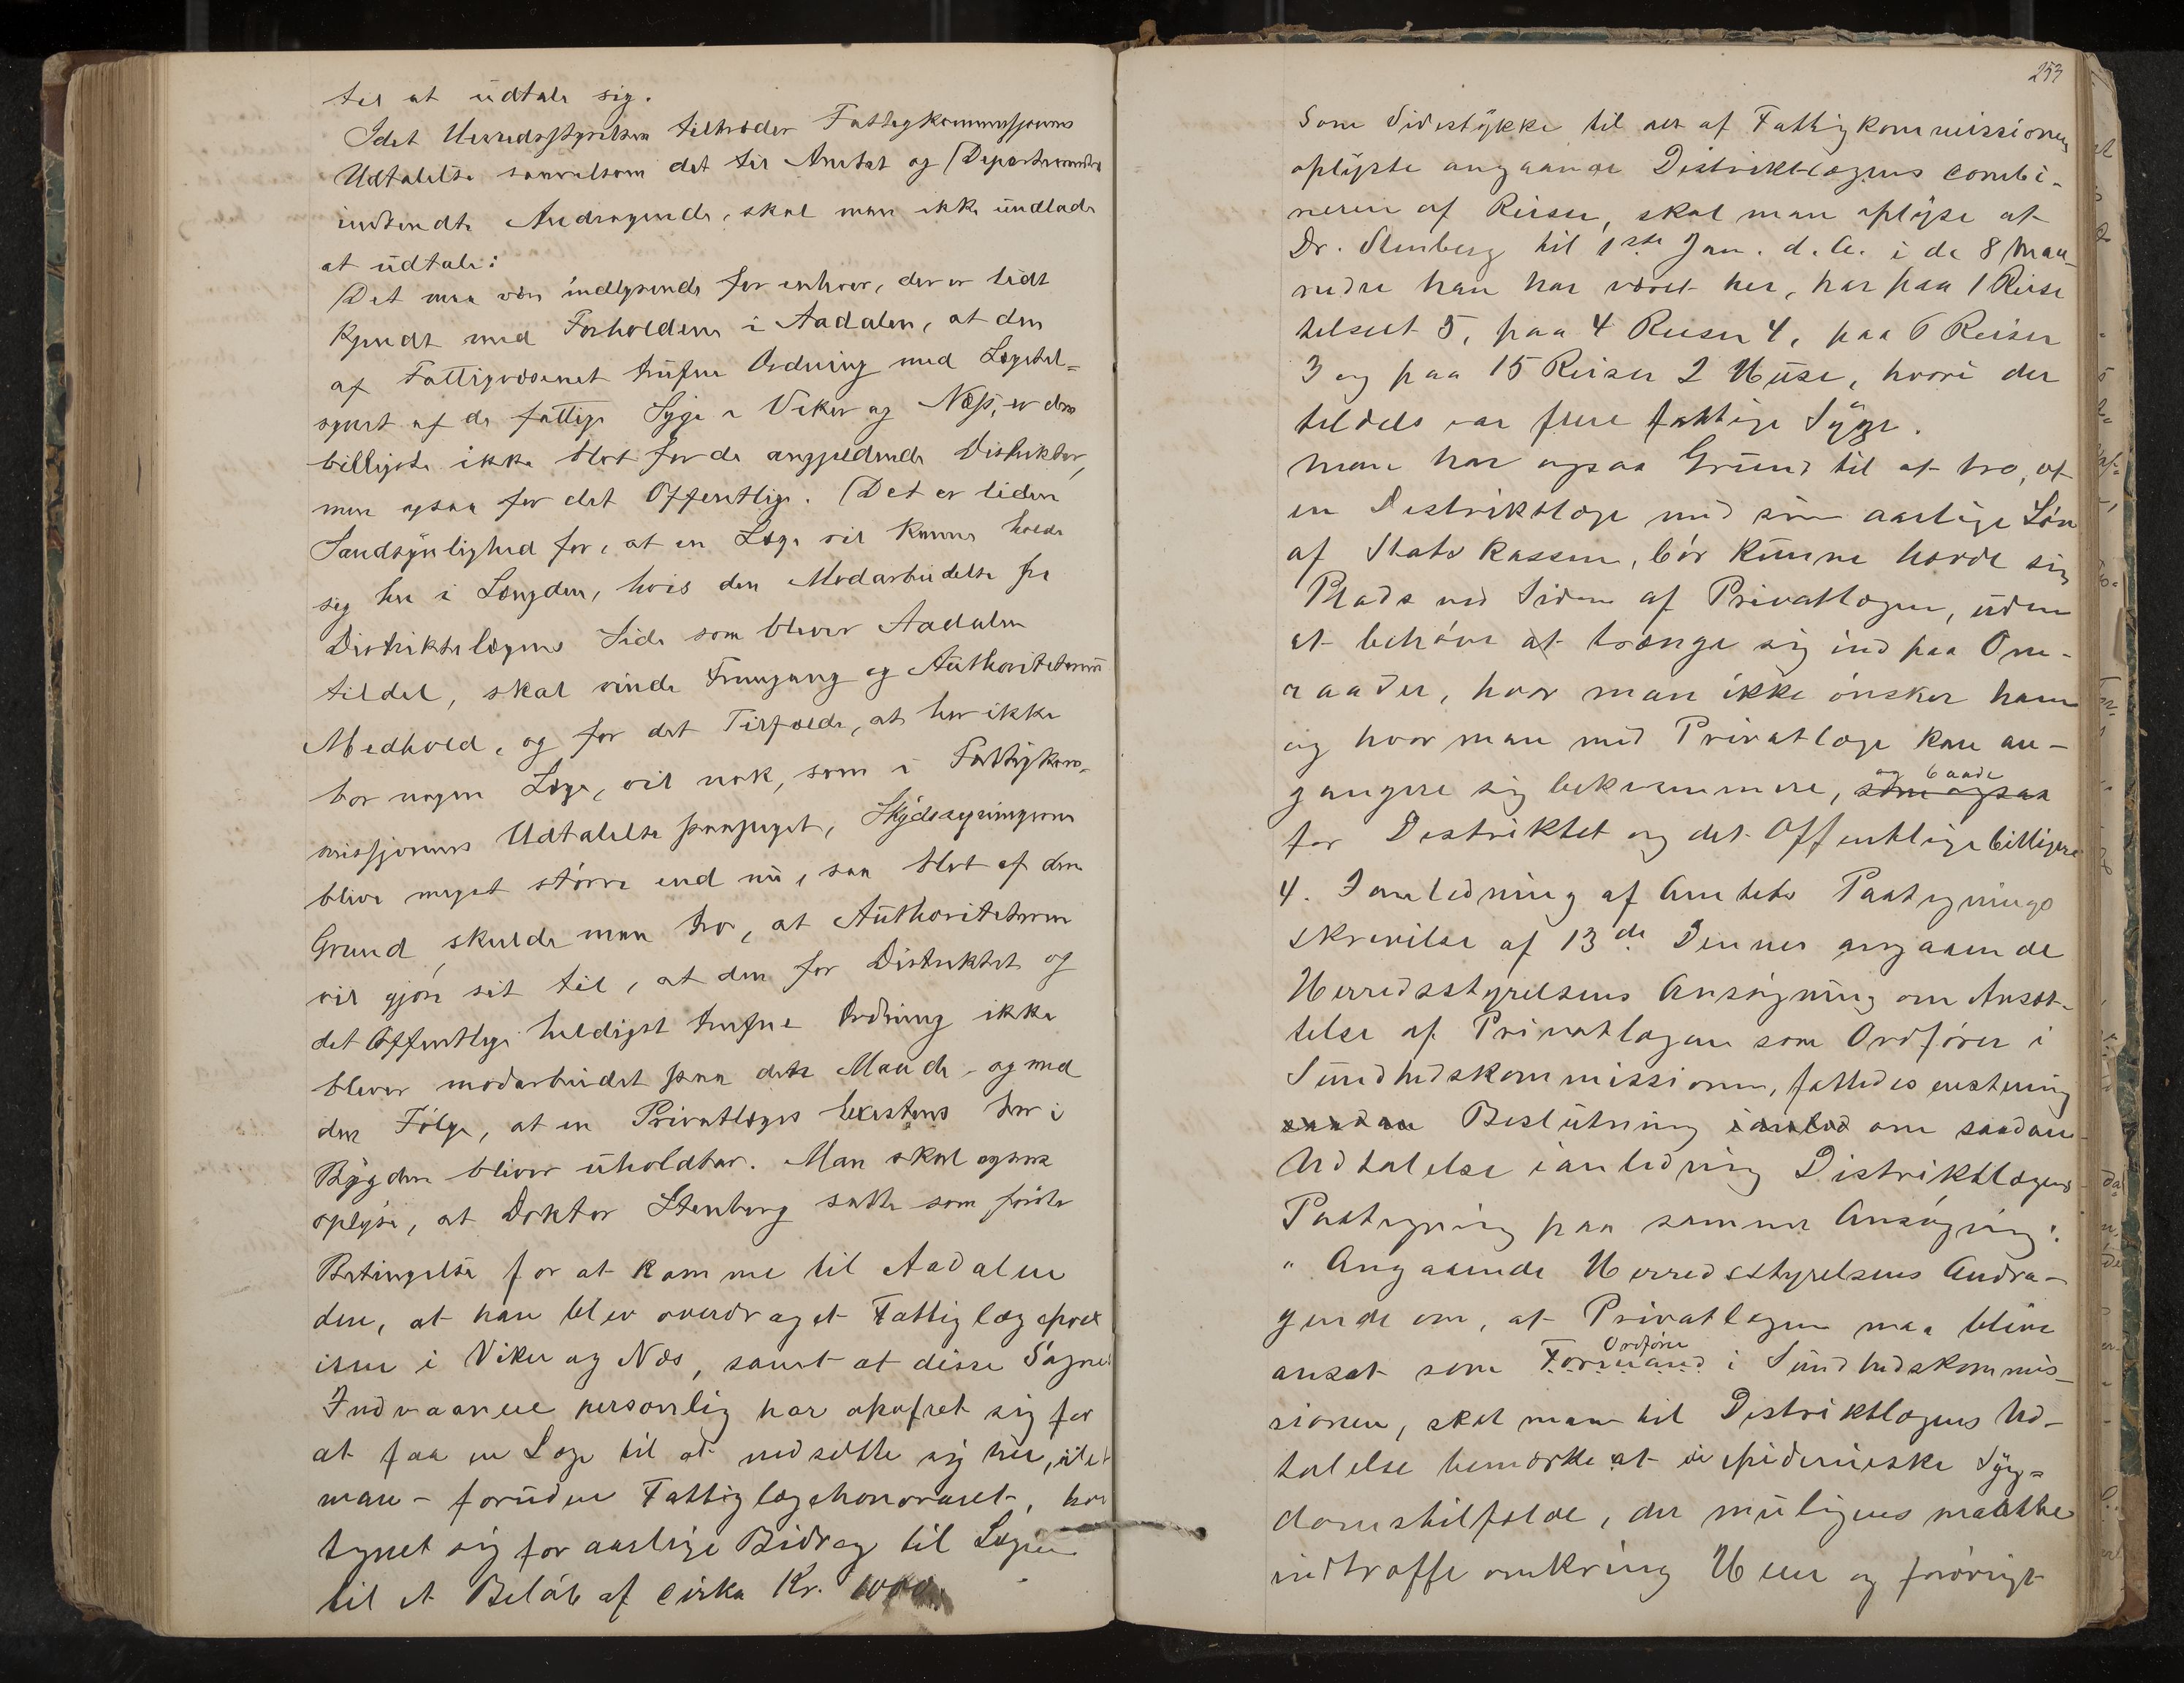 til at udtale sig.
Idet Herredsstyrelsen tiltræder Fattigkommissjonens
Udtalelse saavelsom det til Amtet og Departementet
indsendte Andragende, skal man ikke undlade
at udtale:
Det maa være indlysende for enhver, der er lidt
kjendt med Forholdene i Aadalen, at den
af Fattigvæsenet trufne Ordning med Lægetil-
synet af de fattige Syge i Viker og Næss, er den
billigste ikke blot for de angjældende Distrikter,
men ogsaa for det Offentlige. Det er liden
Sandsynlighed for, at en Læge vil kunne holde
sig her i Længden, hvis den Modarbeidelse fra
Distriktslægens Side som bliver Aadalen
tildel, skal vinde Fremgang og Authoriteternes
Medhold, og for det Tilfælde, at her ikke
bor nogen Læge, vil nok, som i Fattigkom-
missjonens Udtalelse paapeget, Skydsregningerne
blive meget større end nu, saa blot af den
Grund skulde man tro, at Authoriteterne
vil gjøre sit til, at den for Distriktet og
det Offentlige heldigst trufne Ordning ikke
bliver modarbeidet paa dette Maade og med
den Følge, at en Privatlæges Existens her i
Bygden bliver uholdbar. Man skal ogsaa
oplyse, at Doktor Stenberg satte som første
Betingelse for at komme til Aadalen
den, at han blev overdraget Fattiglægeprax
isen i Viker og Næs, samt at disse Sognes
Indvaanere personlig har opofret sig for
at faa en Læge til at nedsætte sig her, idet
man - foruden Fattiglægehonoraret, har
tegnet sig for aarlige Bidrag til Lægen
til et Beløb af cirka Kr. 1000.
253
Som Sidestykke til det af Fattigkommissionen
oplyste angaaende Distriktlægens combi-
neren af Reiser, skal man oplyse at
Dr. Stenberg til 1ste Jan. d. A. i de 8 Maa-
neder han har været her, har paa 1 Reise
tilseet 5, paa 4 Reiser 4, paa 6 Reiser
3 og paa 15 Reiser 2 Huse, hvori der
tildels var flere fattige Syge.
Man har ogsaa Grund til at tro, at
en Distriktslæge med sin aarlige Løn
af Statskassen, bør kunne hævde sin
Plads ved Siden af Privatlægen, uden
at behøve at trænge sig ind paa Om-
raader, hvor man ikke ønsker ham
og hvor man med Privatlæge kan an-
gangere sig bekvemmere, som ogsaa
og baade
for Distriktet og det Offentlige billigere
4. I anledning af Amtets Paategnings
skrivelse af 13de Dennes angaaende
Herredsstyrelsens Ansøgning om Ansæt-
telse af Privatlægen som Ordfører i
Sundhedskommissionen, fattedes enstemig
saadan Beslutning ianled om saadan
Udtalelse ianledning Distriktlægens
Paategning paa samme Ansøgning:
" Angaaende Herredsstyrelsens Andra-
gende om, at Privatlægen maa blive
Ordfører
ansat som Formand i Sundhedskommis-
sionen, skal man til Distriktlægens Ud-
talelse bemærke at de epidemieske Syg-
domstilfælde, der muligens maatte
indtræffe omkring Heen og forøvrigt